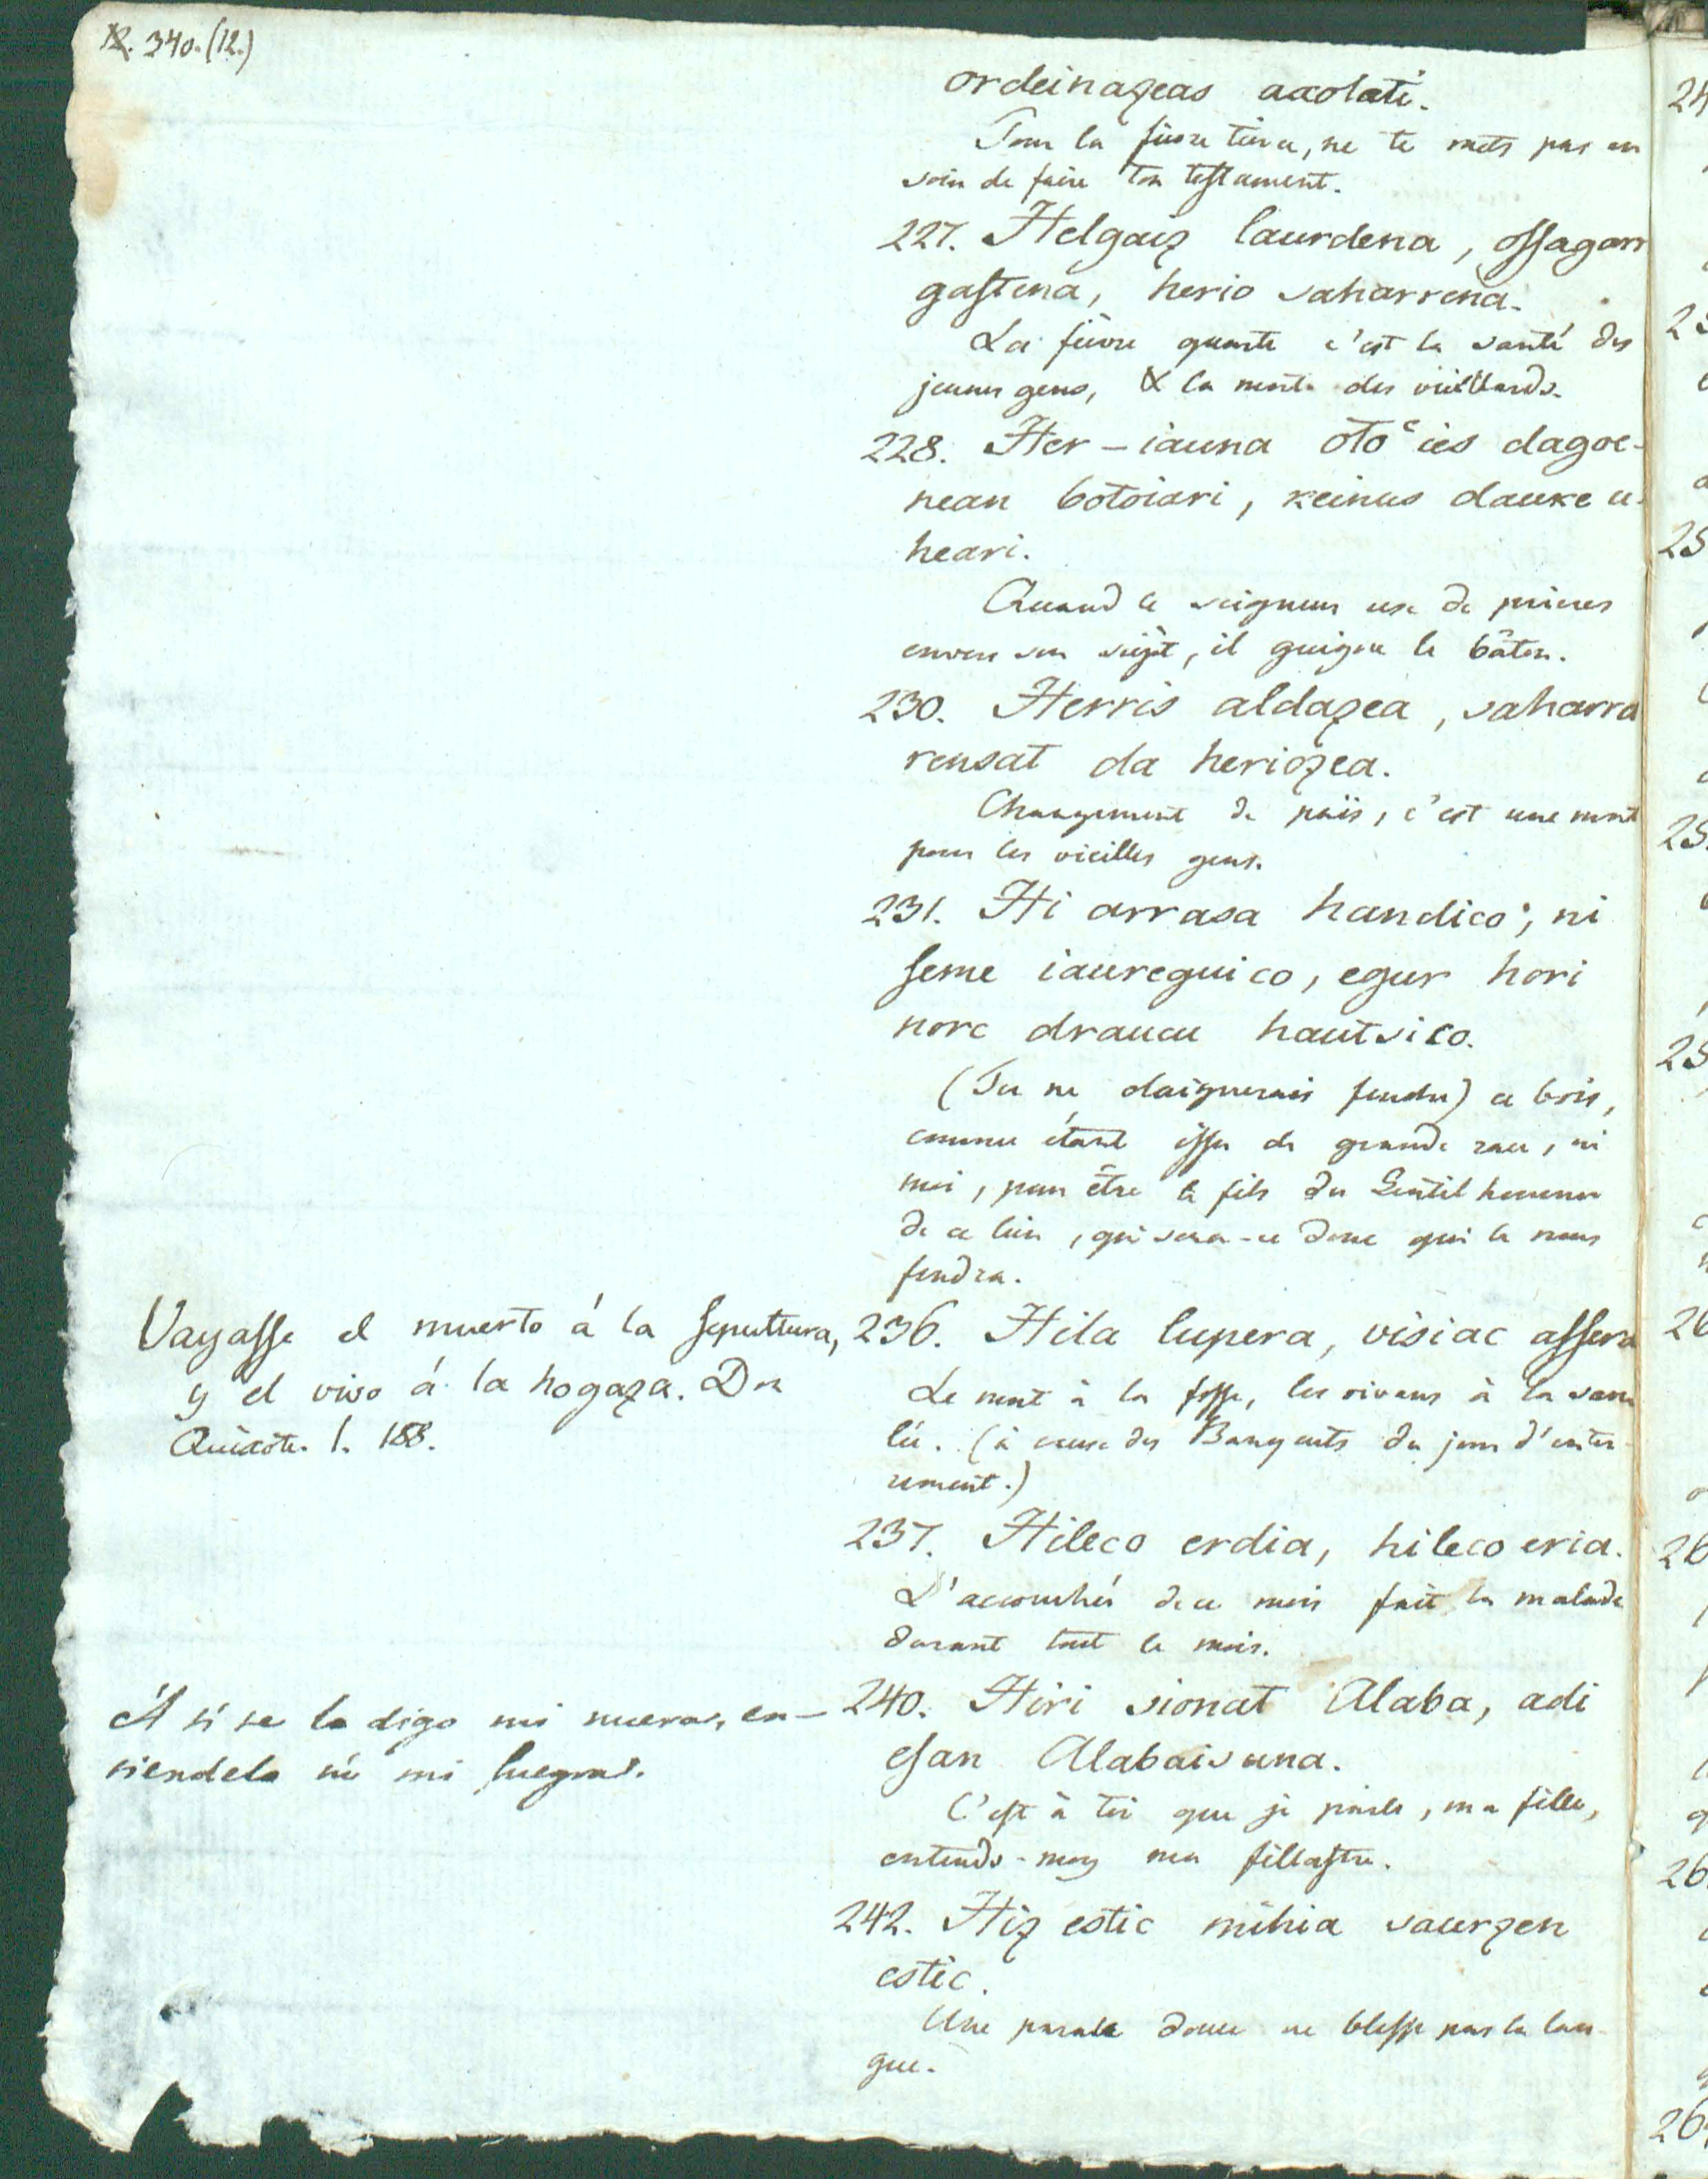 12. 340. (12.)
ordeinazeas axolati.
Pour la fievre tierce, ne te mets pas en
soin de faire ton testament.
227. Helgaiz laurdena, ossagarr
gastena, herio saharrena.
La fièvre quarte c'est la santé des
jeunes gens, & la mort des vieillards.
228. Her-iauna otoeiés dagoe-
nean botoiari, keinus dauke u-
heari.
Quand le seigneur use de prieres
envers son sujèt, il guigne le bâton.
230. Herris aldazea, saharra
rensat da heriozea.
Changement de païs, c'est une mort
pour les vieilles gens.
231. Hi arrasa handico, ni
seme iaureguico, egur hori
norc draucu hautsico.
(Tu ne daignerais fendre) ce bois,
comme étant issu de grande race, ni
moi, pour être le fils du Gentilhomme
de ce lieu, qui sera-ce donc qui le nous
fendra.
Vayasse el muerto á la sepultura,
y el vivo á la hogaza. Dn
Quixote. 1. 188.
236. Hila lupera, visiac assera
Le mort à la fosse, les vivans à la saou
lée. (à cause des Banquets du jour d'enter-
rement.)
237. Hileco erdia, hileco eria.
L'accouchée de ce mois fait la malade
durant tout le mois.
A ti te lo digo mi nuera, en-
tiendelo tú mi suegra.
240. Hiri sionat Alaba, adi
esan Alabaisuna.
C'est à toi que je parle, ma fille,
entends-moy ma fillastre.
242. Hiz estic mihia saurzen
estic.
Une parole douce ne blesse pas la lan-
gue.